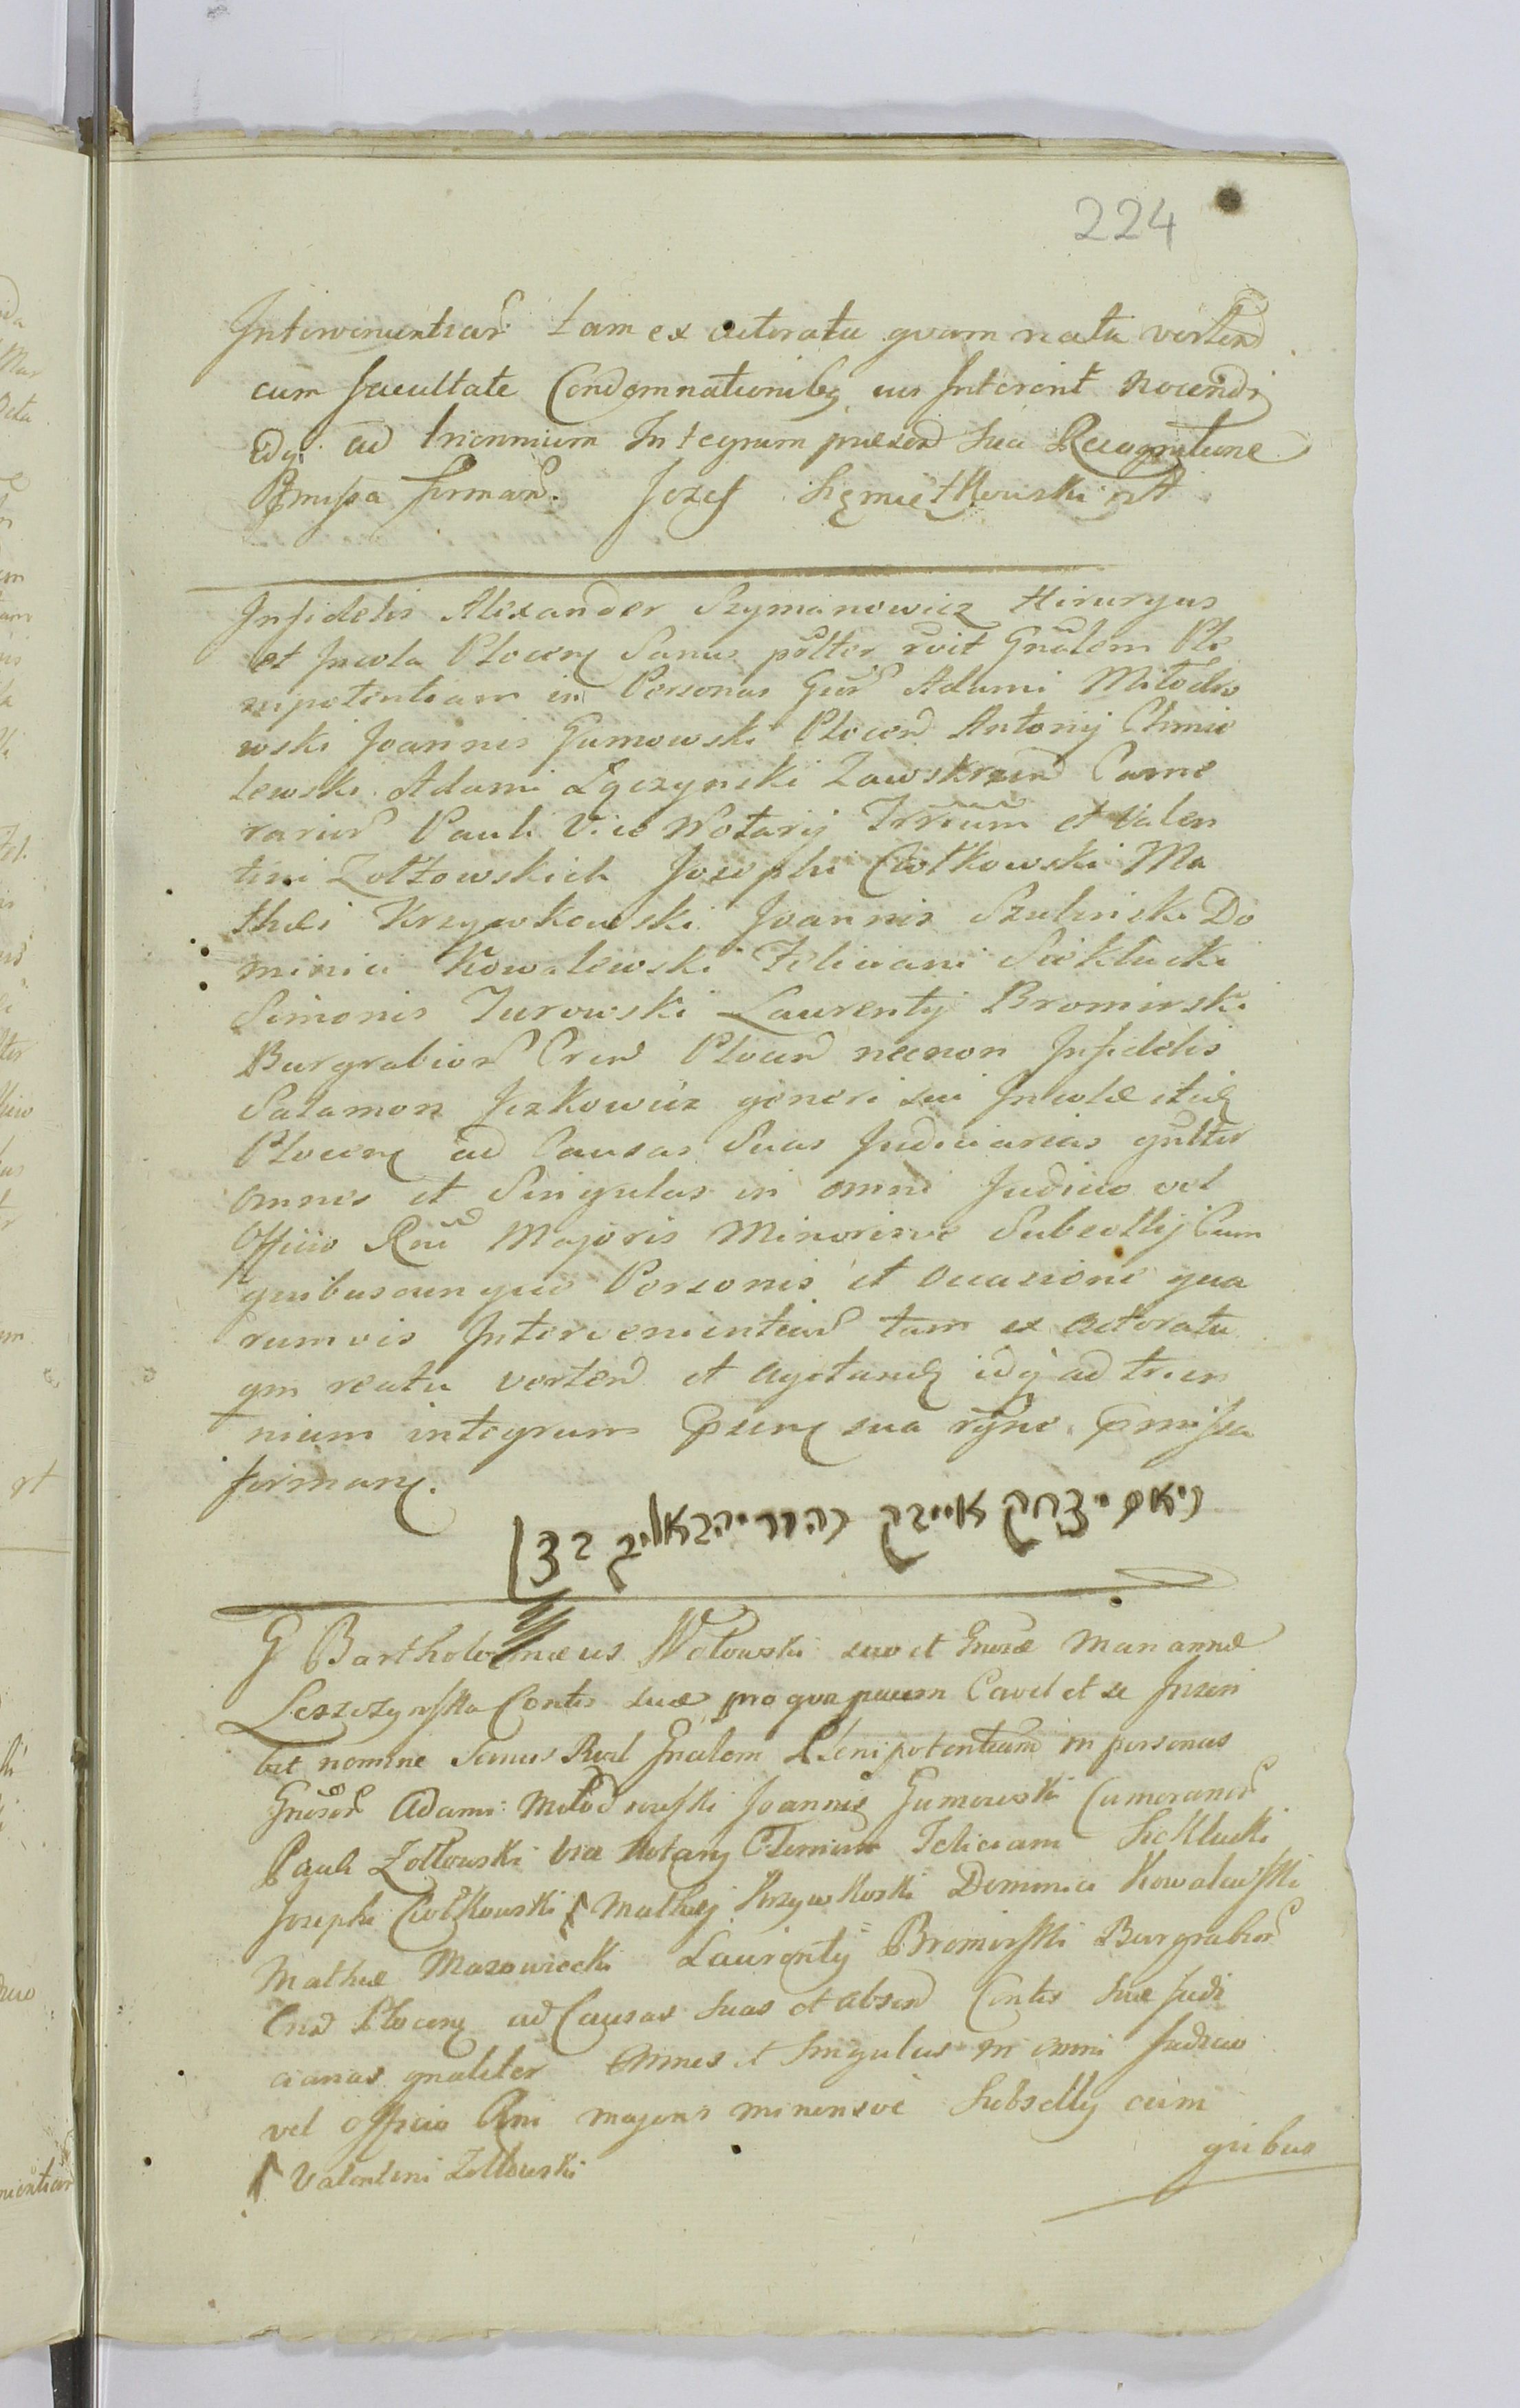 224
Intervenientiar tam ex actoratu quam reatu vertend
cum facultate Condemnationibg eus Interint nocendi
idq ad triennium Integrum presen Sua Recognitione
Pmissa firman. Jozef
Infidelis Alexander Szymanowicz Hirurgus
et Incola Plocen Sanus pltter roit Gnalem Ple
nipotentiam in Personas Gur Adami Młodzio
wski Joannis Gumowski Plocen Antonij Chmie
lewski Adami Łączynski Zawskrzen Came
rarior Pauli Vice Notarij Trrium et Valen
tini Zołtowskich Josephi Ciołkowski Ma
thei Krzywkowski Joannis Szulinski Do
minici Kowalewski Feliciani Sieklucki
Simonis Zurowski Laurentij Bromirski
Burgrabior Cren Plocen necnon Infidelis
Salamon Jczkowicz generi sui Incolæ itid
Plocen ad Causas Suas Judiciarias gnltter
omnes et Singulas in omni Judicio vel
Officio Rni Majoris Minorisve Subsellij Cum
quibuscunque Personis et occasione qua
rumvis Intervenientiar tam ex actoratu
qm reatu vertend et agitand idq ad trien
nium integrum psen sua rgne pmissa
firman.
G Bartholomæus Wołowski suo et Gnosæ Mariannæ
Leszczynska Contis suæ pro qua pacem Cavet et se Inscri
bit nomine Sanus Roit Gnalem Plenipotentiam in personas
Gnosor Adami Młodziewski Joannis Gumowski Camerarior
Pauli Zołtowski Vice Notarij Feliciani Sieklucki
Josephi Ciołkowski Mathej Krzywkoski Dominici Kowalewski
Mathiæ Mazowiecki Laurentij Bromirski Burgrabior
Cnd Plocen ad Causas suas et absen Contis suæ Judi
ciarias gnaliter omnes et singulas in omni Judicio
vel officio Rni majoris minorisve Subselly cum
quibus
Valentini Zołtowski